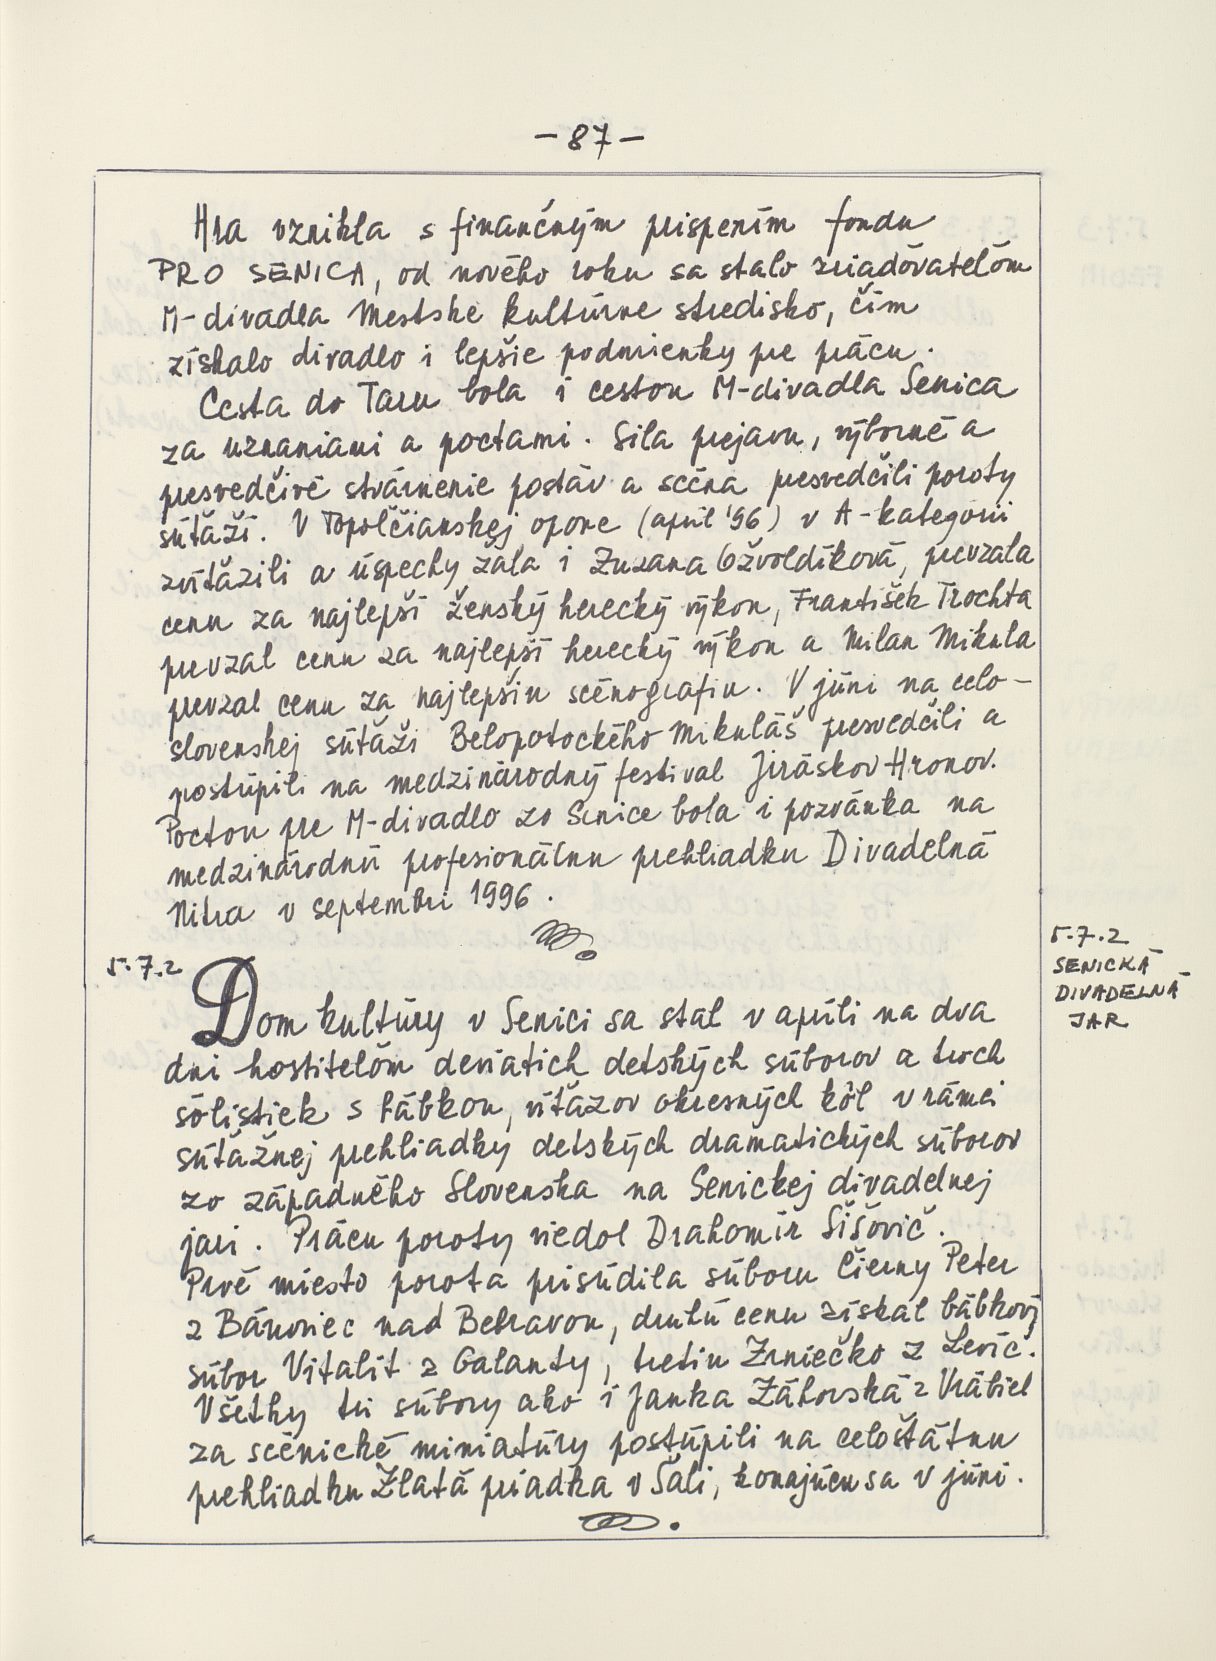 – 87 –
Hra vznikla s finančným prispením fondu
PRO SENICA, od nového roku sa stalo zriaďovateľom
M-divadla Mestské kultúrne stredisko, čím
získalo divadlo i lepšie podmienky pre prácu.
Cesta do Taru bola i cestou M-divadla Senica
za uznaniami a poctami. Sila prejavu, výborné a
presvedčivé stvárnenie postáv a scéna presvedčili poroty
súťaží. V Topoľčianskej opone (apríl '96) v A-kategórii
zvíťazili a úspechy žala i Zuzana Ožvoldíková, prevzala
cenu za najlepší ženský herecký výkon, František Trochta
prevzal cenu za najlepší herecký výkon a Milan Mikula
prevzal cenu za najlepšiu scénografiu. V júni na celo-
slovenskej súťaži Belopotockého Mikuláš presvedčili a
postúpili na medzinárodný festival Jiráskov Hronov.
Poctou pre M-divadlo zo Senice bola i pozvánka na
medzinárodnú profesionálnu prehliadku Divadelná
Nitra v septembri 1996.
5.7.2
SENICKÁ
DIVADELNÁ
JAR
5.7.2
Dom kultúry v Senici sa stal v apríli na dva
dni hostiteľom deviatich detských súborov a troch
sólistiek s bábkou, víťazov okresných kôl v rámci
súťažnej prehliadky detských dramatických súborov
zo západného Slovenska na Senickej divadelnej
jari. Prácu poroty viedol Drahomír Šišovič.
Prvé miesto porota prisúdila súboru Čierny Peter
z Bánoviec nad Bebravou, druhú cenu získal bábkový
súbor Vitalit z Galanty, tretiu Zrniečko z Levíc.
Všetky tri súbory ako i Janka Záhorská z Vrábieľ
za scénické miniatúry postúpili na celoštátnu
prehliadku Zlatá priadka v Šali, konajúcu sa v júni.